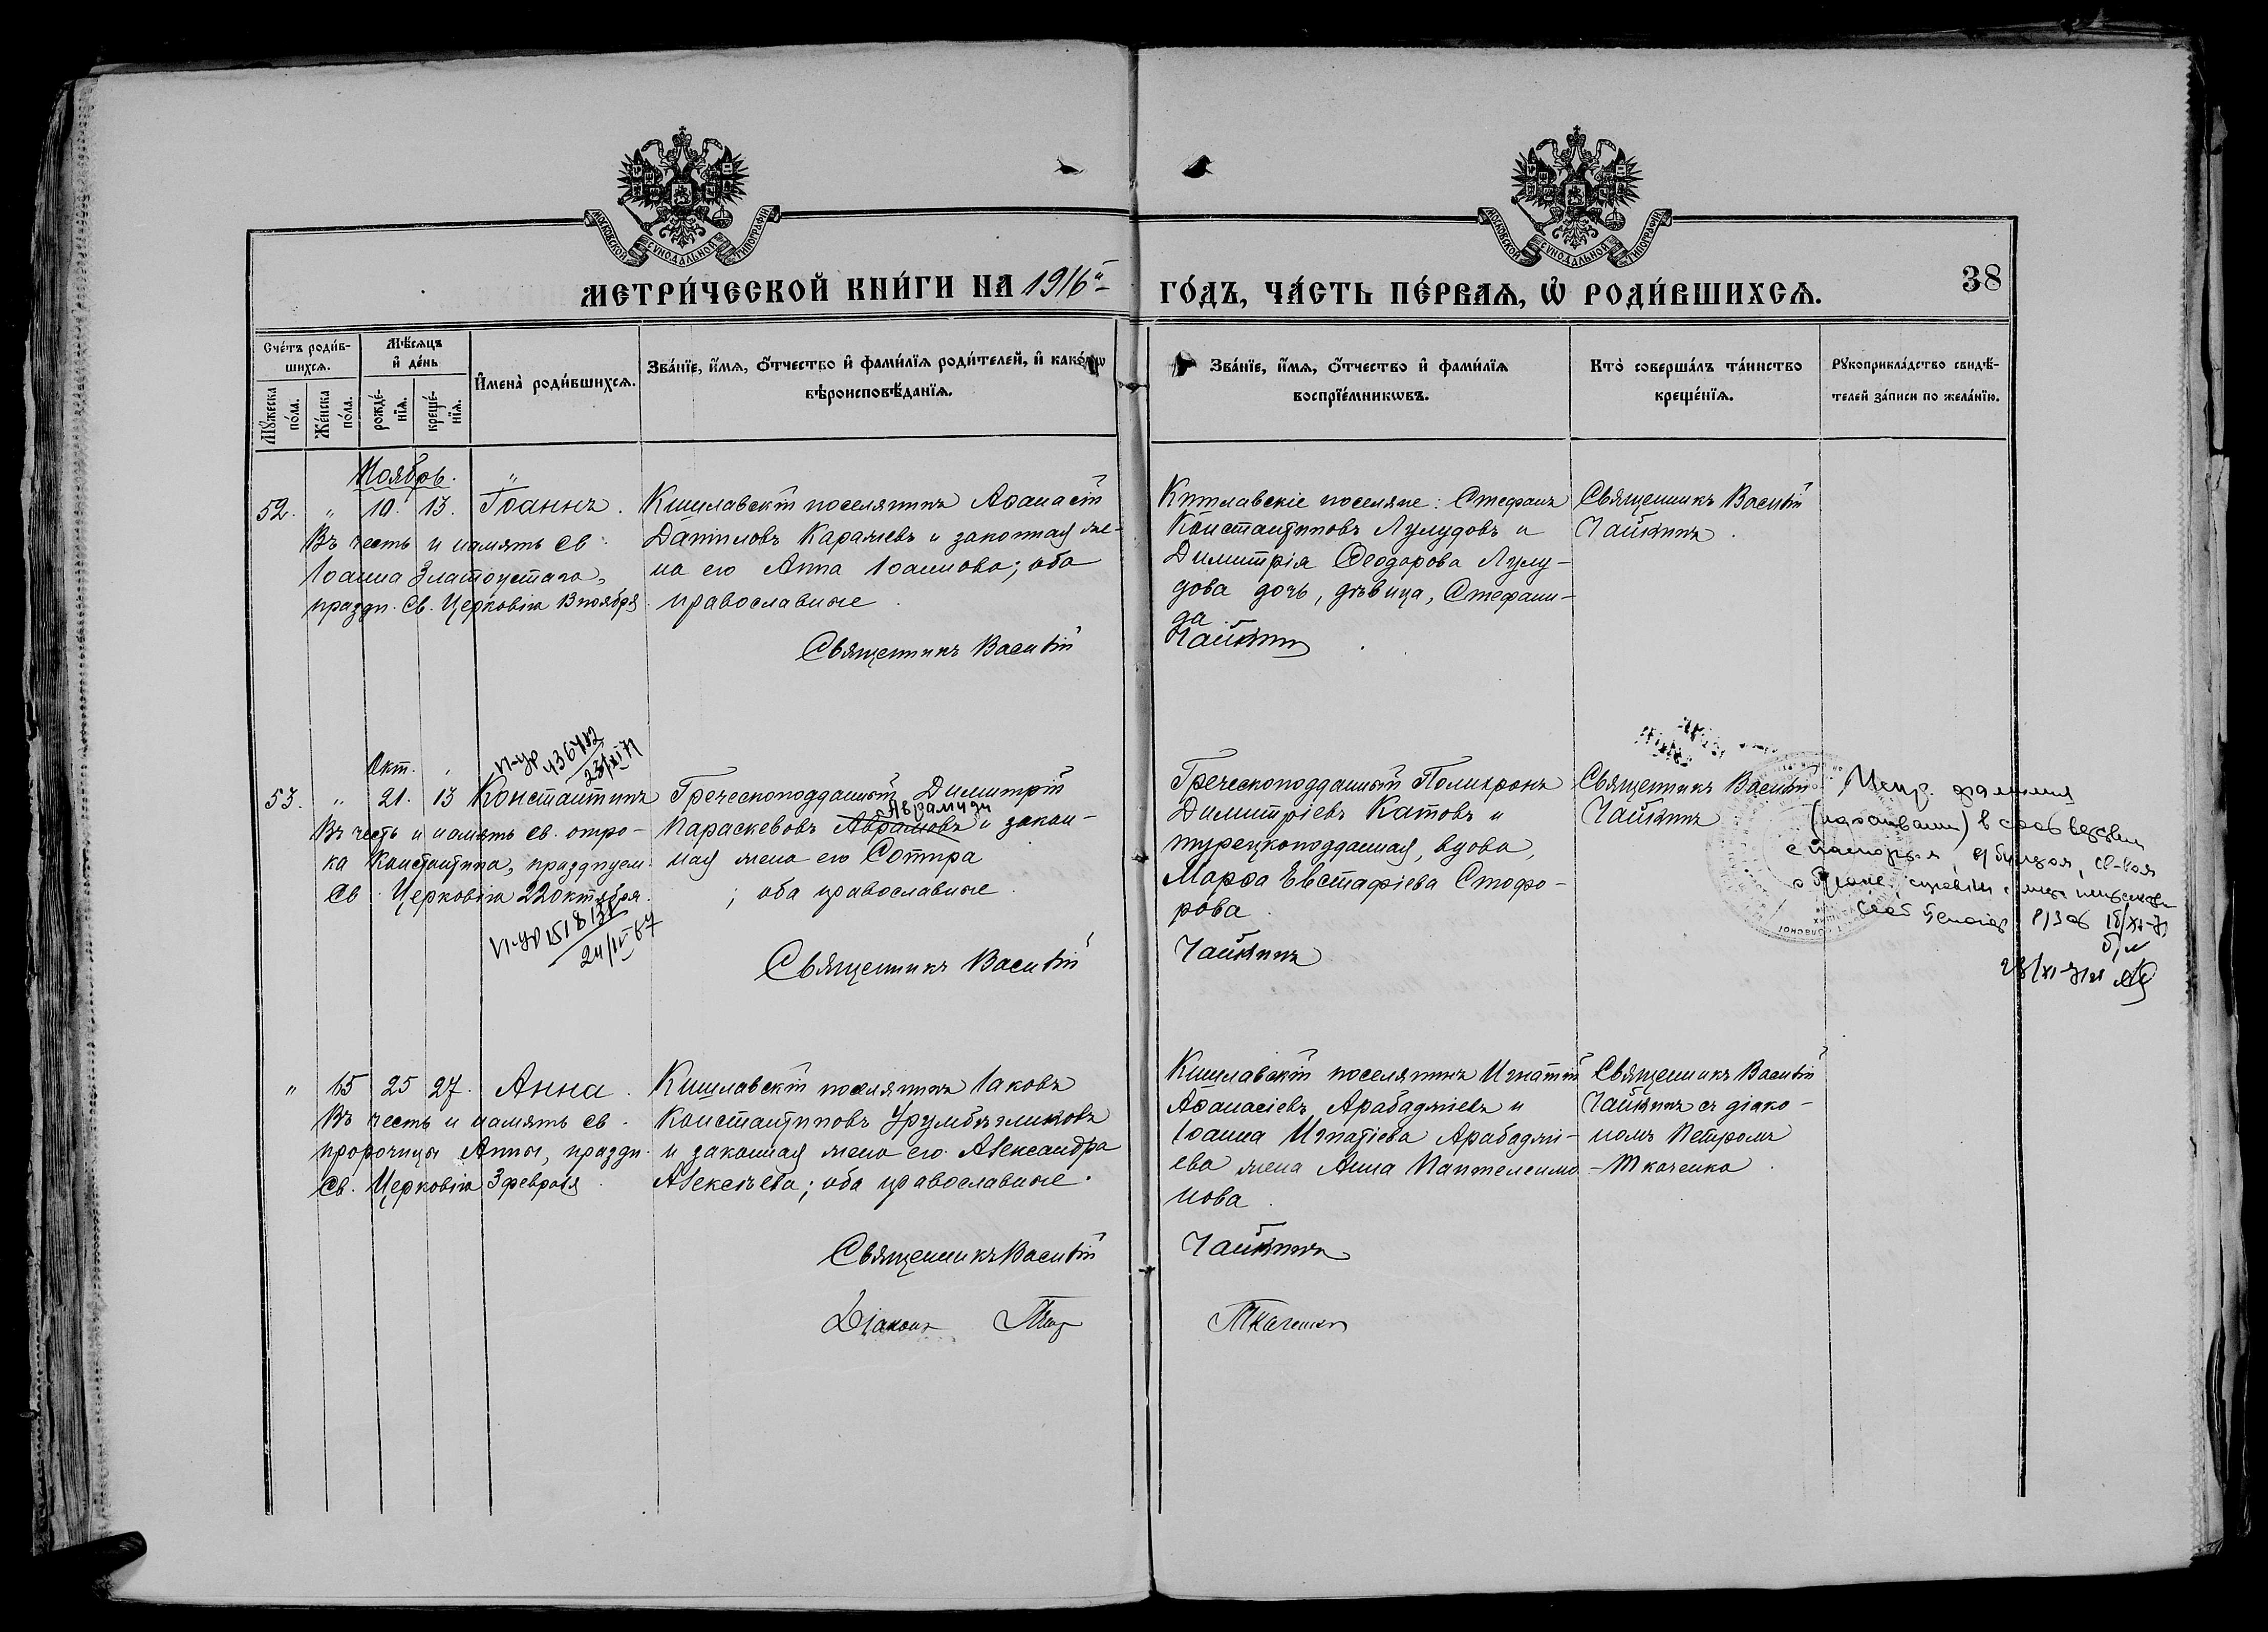 МОСКОВСКОЙ СѴНОДАЛЬНОЙ ТИПОГРАФІИ
МОСКОВСКОЙ СѴНОДАЛЬНОЙ ТИПОГРАФІИ
МЕТРИ́ЧЕСКОЙ КНИ́ГИ НА 1916й
ГО́ДЪ, ЧА́СТЬ ПЕ́РВАѦ, Ѡ҆ РОДИ́ВШИХСѦ.
38
Сче́тъ роди́в-
шихсѧ.
Мꙋ́жеска
по́ла.
Же́нска
по́ла.
Мѣ́сѧцъ
и҆ де́нь
рожде́-
нїѧ.
креще́-
нїѧ.
И҆мена̀ роди́вшихсѧ.
Зва́нїе, и҆́мѧ, ѻ҆́тчество и҆ фами́лїѧ роди́телей, и҆ како́гѡ
вѣроисповѣ́данїѧ.
Зва́нїе, и҆́мѧ, ѻ҆́тчество и҆ фами́лїѧ
воспрїе́мникѡвъ.
Кто̀ соверша́лъ та́инство
креще́нїѧ.
Рꙋкоприкла́дство свидѣ́-
телей за́писи по жела́нїю.
Ноябрь.
52. " 10. 13. Іоаннъ.
Въ честь и память св.
Іоанна Златоустаго,
праздн. Св. Церковію 13 ноября.
Кишлавскій поселянинъ Аѳанасій
Даніиловъ Каражевъ и законная же-
на его Анна Іоаннова; оба
православные.
Священникъ Василій
Кишлавскіе поселяне: Стефанъ
Константиновъ Лулудовъ и
Димитрія Ѳеодорова Лулу-
дова дочь, дѣвица, Стефани-
да.
Чайкинъ
Священникъ Василій
Чайкинъ.
Окт.
53. " 21. 13 Константинъ
Въ честь и память св. отро-
ка Константина, празднуем.
Св. Церковію 22 октября.
П-УР 436782
23/XI 71
П-УР 151813
24/IV 67
Греческоподданный Димитрій
Аврамиди
Параскевовъ Абрамовъ и закон-
ная жена его Сотира
; оба православные.
Священникъ Василій
Греческоподданный Полихронъ
Димитріевъ Катовъ и
турецкоподданная, вдова,
Марѳа Евстафіева Стофо-
рова.
Чайкинъ
Священникъ Василій
Чайкинъ
Испр. фамилия
23/XI-71
" 65 25 27. Анна.
Въ честь и память св.
пророчицы Анны, праздн.
Св. Церковію 3 февраля.
Кишлавскій поселянинъ Іаковъ
Константиновъ Урумбѣгликовъ
и законная жена его Александра
Алексѣева; оба православные.
Священникъ Василій
Діаконъ Петр
Кишлавскій поселянинъ Игнатій
Аѳанасіевъ Арабаджіевъ и
Іоанна Игнатіева Арабаджі-
ева жена Анна Пантелеимо-
нова.
Чайкинъ
Ткаченко
Священникъ Василій
Чайкинъ съ діако-
номъ Петромъ
Ткаченко.